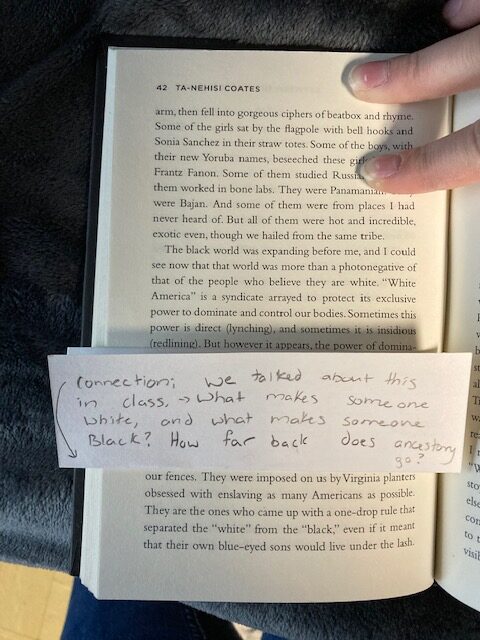 42 TA-NEHISI COATES
arm, then fell into gorgeous ciphers of beatbox and rhyme.
Some of the girls sat by the flagpole with bell hooks and
Sonia Sanchez in their straw totes. Some of the boys, with
their new Yoruba names, beseeched these
Frantz Fanon. Some of them studied
them worked in bone labs. They were Panamanian.
were Bajan. And some of them were from places I had
never heard of. But all of them were hot and incredible,
exotic even, though we hailed from the same tribe.
The black world was expanding before me, and I could
see now that that world was more than a photonegative
of that of the people who believe they are white. "White
America" is a syndicate arrayed to protect its exclusive
power to dominate and control our bodies. Sometimes this
power is direct (lynching), and sometimes it is insidious
(redlining). But however it appears, the power of domina-
Connection: We talked about this
in class. → What makes someone
white, and what makes someone
Black? How far back does ancestory
go?
our fences. They were imposed on us by Virginia planters
obsessed with enslaving as many Americans as possible.
They are the ones who came up with a one-drop rule that
separated the "white" from the "black," even if it meant
that their own blue-eyed sons would live under the lash.